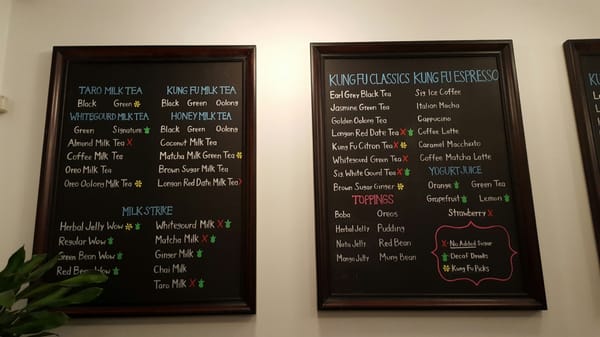 TARO MILK TEA
Black Green
WHITEGOURD MILK TEA
Green Signature
Almond Milk Tea X
Coffee Milk Tea
Oreo Milk Tea
Oreo Oolong Milk Tea
KUNG FU MILK TEA
Black Green Oolong
HONEY MILK TEA
Black Green Oolong
Coconut Milk Tea
Matcha Milk Green Tea
Brown Sugar Milk Tea
Longan Red Date Milk Tea X
MILK STRIKE
Herbal Jelly Wow
Regular Wow
Green Bean Wow
Red Bean Wow
Whitegourd Milk X
Matcha Milk X
Ginger Milk
Chai Milk
Taro Milk X
KUNG FU CLASSICS
Earl Grey Black Tea
Jasmine Green Tea
Golden Oolong Tea
Longan Red Date Tea X
Kung Fu Citron Tea X
Whitegourd Green Tea X
Sig. White Gourd Tea X
Brown Sugar Ginger
TOPPINGS
Boba Oreos
Herbal Jelly Pudding
Nata Jelly Red Bean
Mango Jelly Mung Bean
KUNG FU ESPRESSO
Sig. Ice Coffee
Italian Mocha
Cappuccino
Coffee Latte
Caramel Macchiato
Coffee Matcha Latte
YOGURT JUICE
Orange Green Tea
Grapefruit Lemon
Strawberry X
X - No Added Sugar
- Decaf Drinks
- Kung Fu Picks